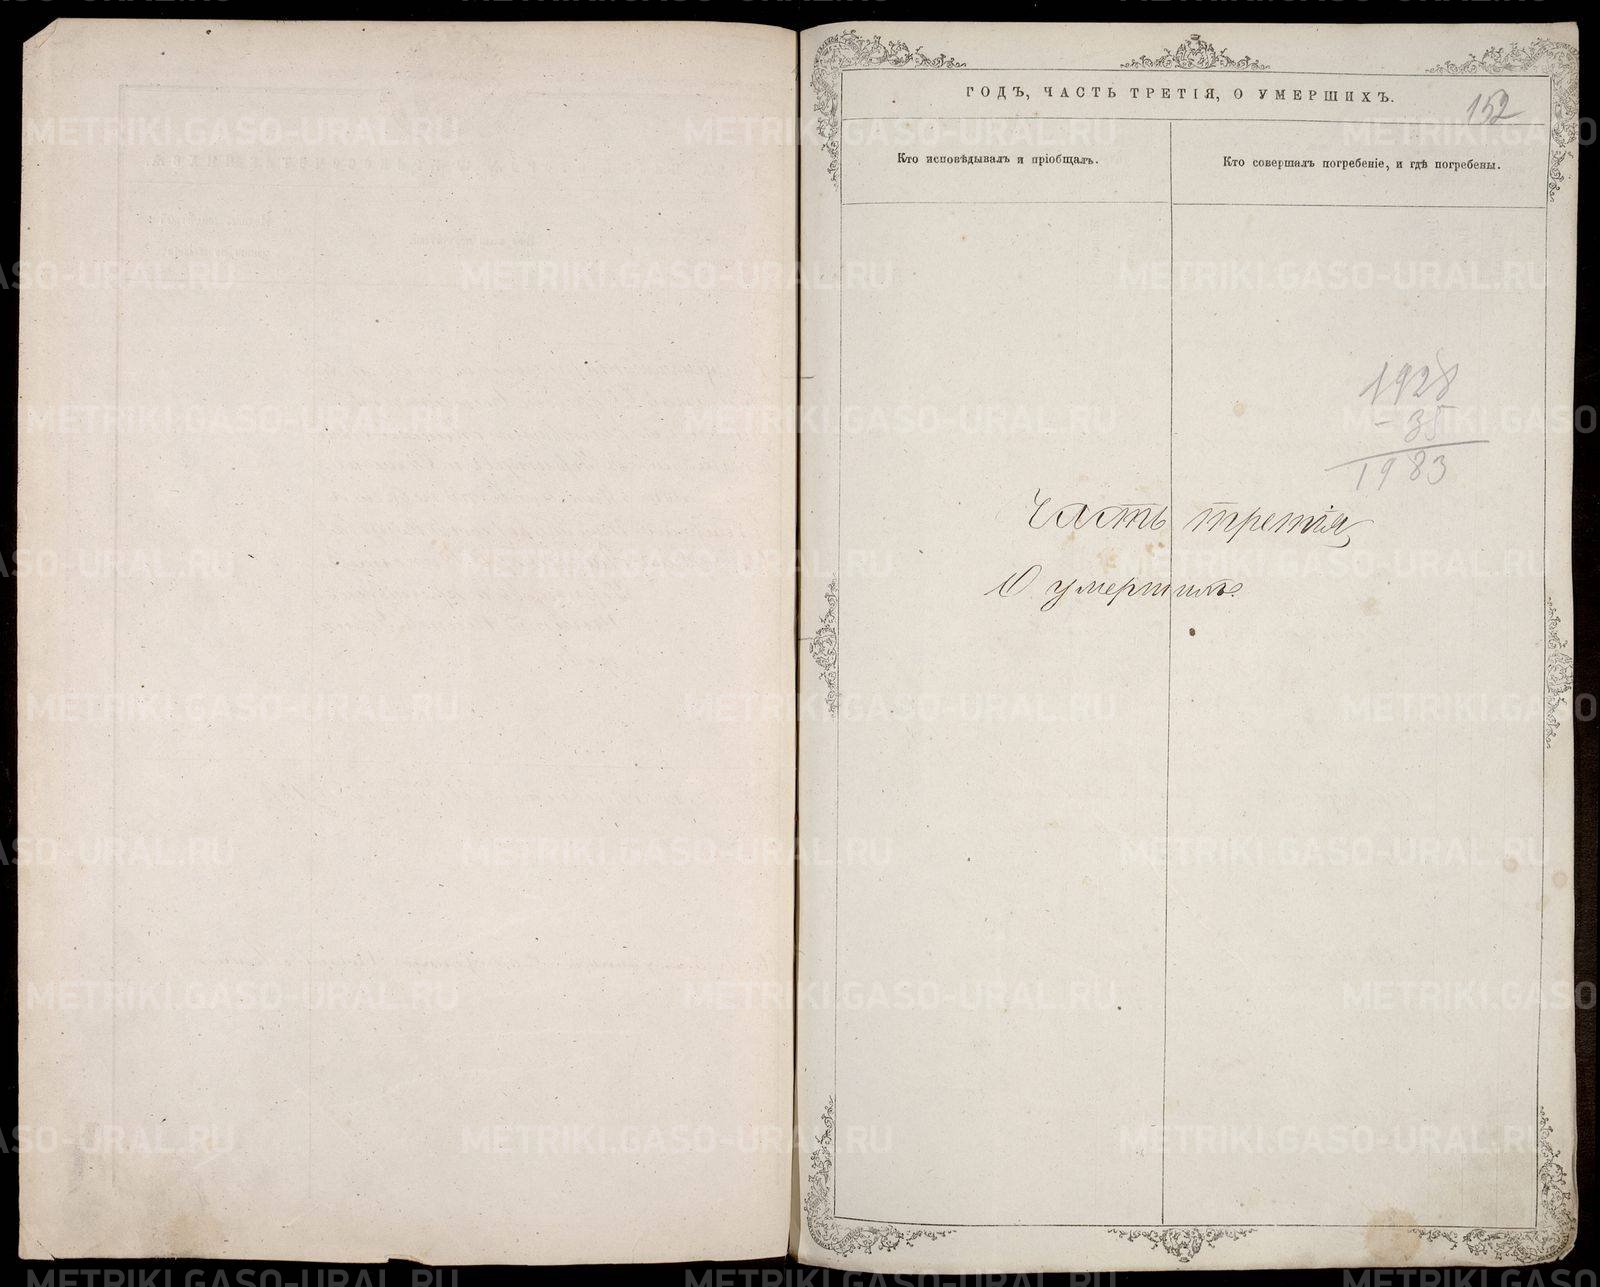 ГОДЪ, ЧАСТЬ ТРЕТІЯ, О УМЕРШИХЪ.
152
Кто исповѣдывалъ и пріобщалъ.
Кто совершалъ погребеніе, и гдѣ погребены.
1928
- 35
1983
Часть третія
О умершихъ.
METRIKI.GASO-URAL.RU